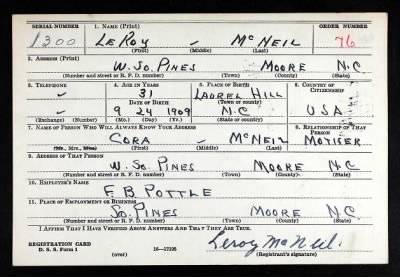 SERIAL NUMBER 1. NAME (Print) ORDER NUMBER
1300 LeRoy - McNeil 76
(First) (Middle) (Last)
2. ADDRESS (Print)
W. So. Pines Moore N.C.
(Number and street or R. F. D. number) (Town) (County) (State)
3. TELEPHONE 4. AGE IN YEARS 5. PLACE OF BIRTH 6. COUNTRY OF CITIZENSHIP
- 31 Laurel Hill
DATE OF BIRTH (Town or county)
- 9 24 1909 N.C. USA
(Exchange) (Number) (Mo.) (Day) (Yr.) (State or country)
7. NAME OF PERSON WHO WILL ALWAYS KNOW YOUR ADDRESS 8. RELATIONSHIP OF THAT PERSON
Cora - McNeil Mother
(Mr., Mrs., Miss) (First) (Middle) (Last)
9. ADDRESS OF THAT PERSON
W. So. Pines Moore N.C.
(Number and street or R. F. D. number) (Town) (County) (State)
10. EMPLOYER'S NAME
F. B. Pottle
11. PLACE OF EMPLOYMENT OR BUSINESS
So. Pines Moore N.C.
(Number and street or R. F. D. number) (Town) (County) (State)
I AFFIRM THAT I HAVE VERIFIED ABOVE ANSWERS AND THAT THEY ARE TRUE.
REGISTRATION CARD
D. S. S. Form 1 16-17105 Leroy McNeil.
(over) (Registrant's signature)